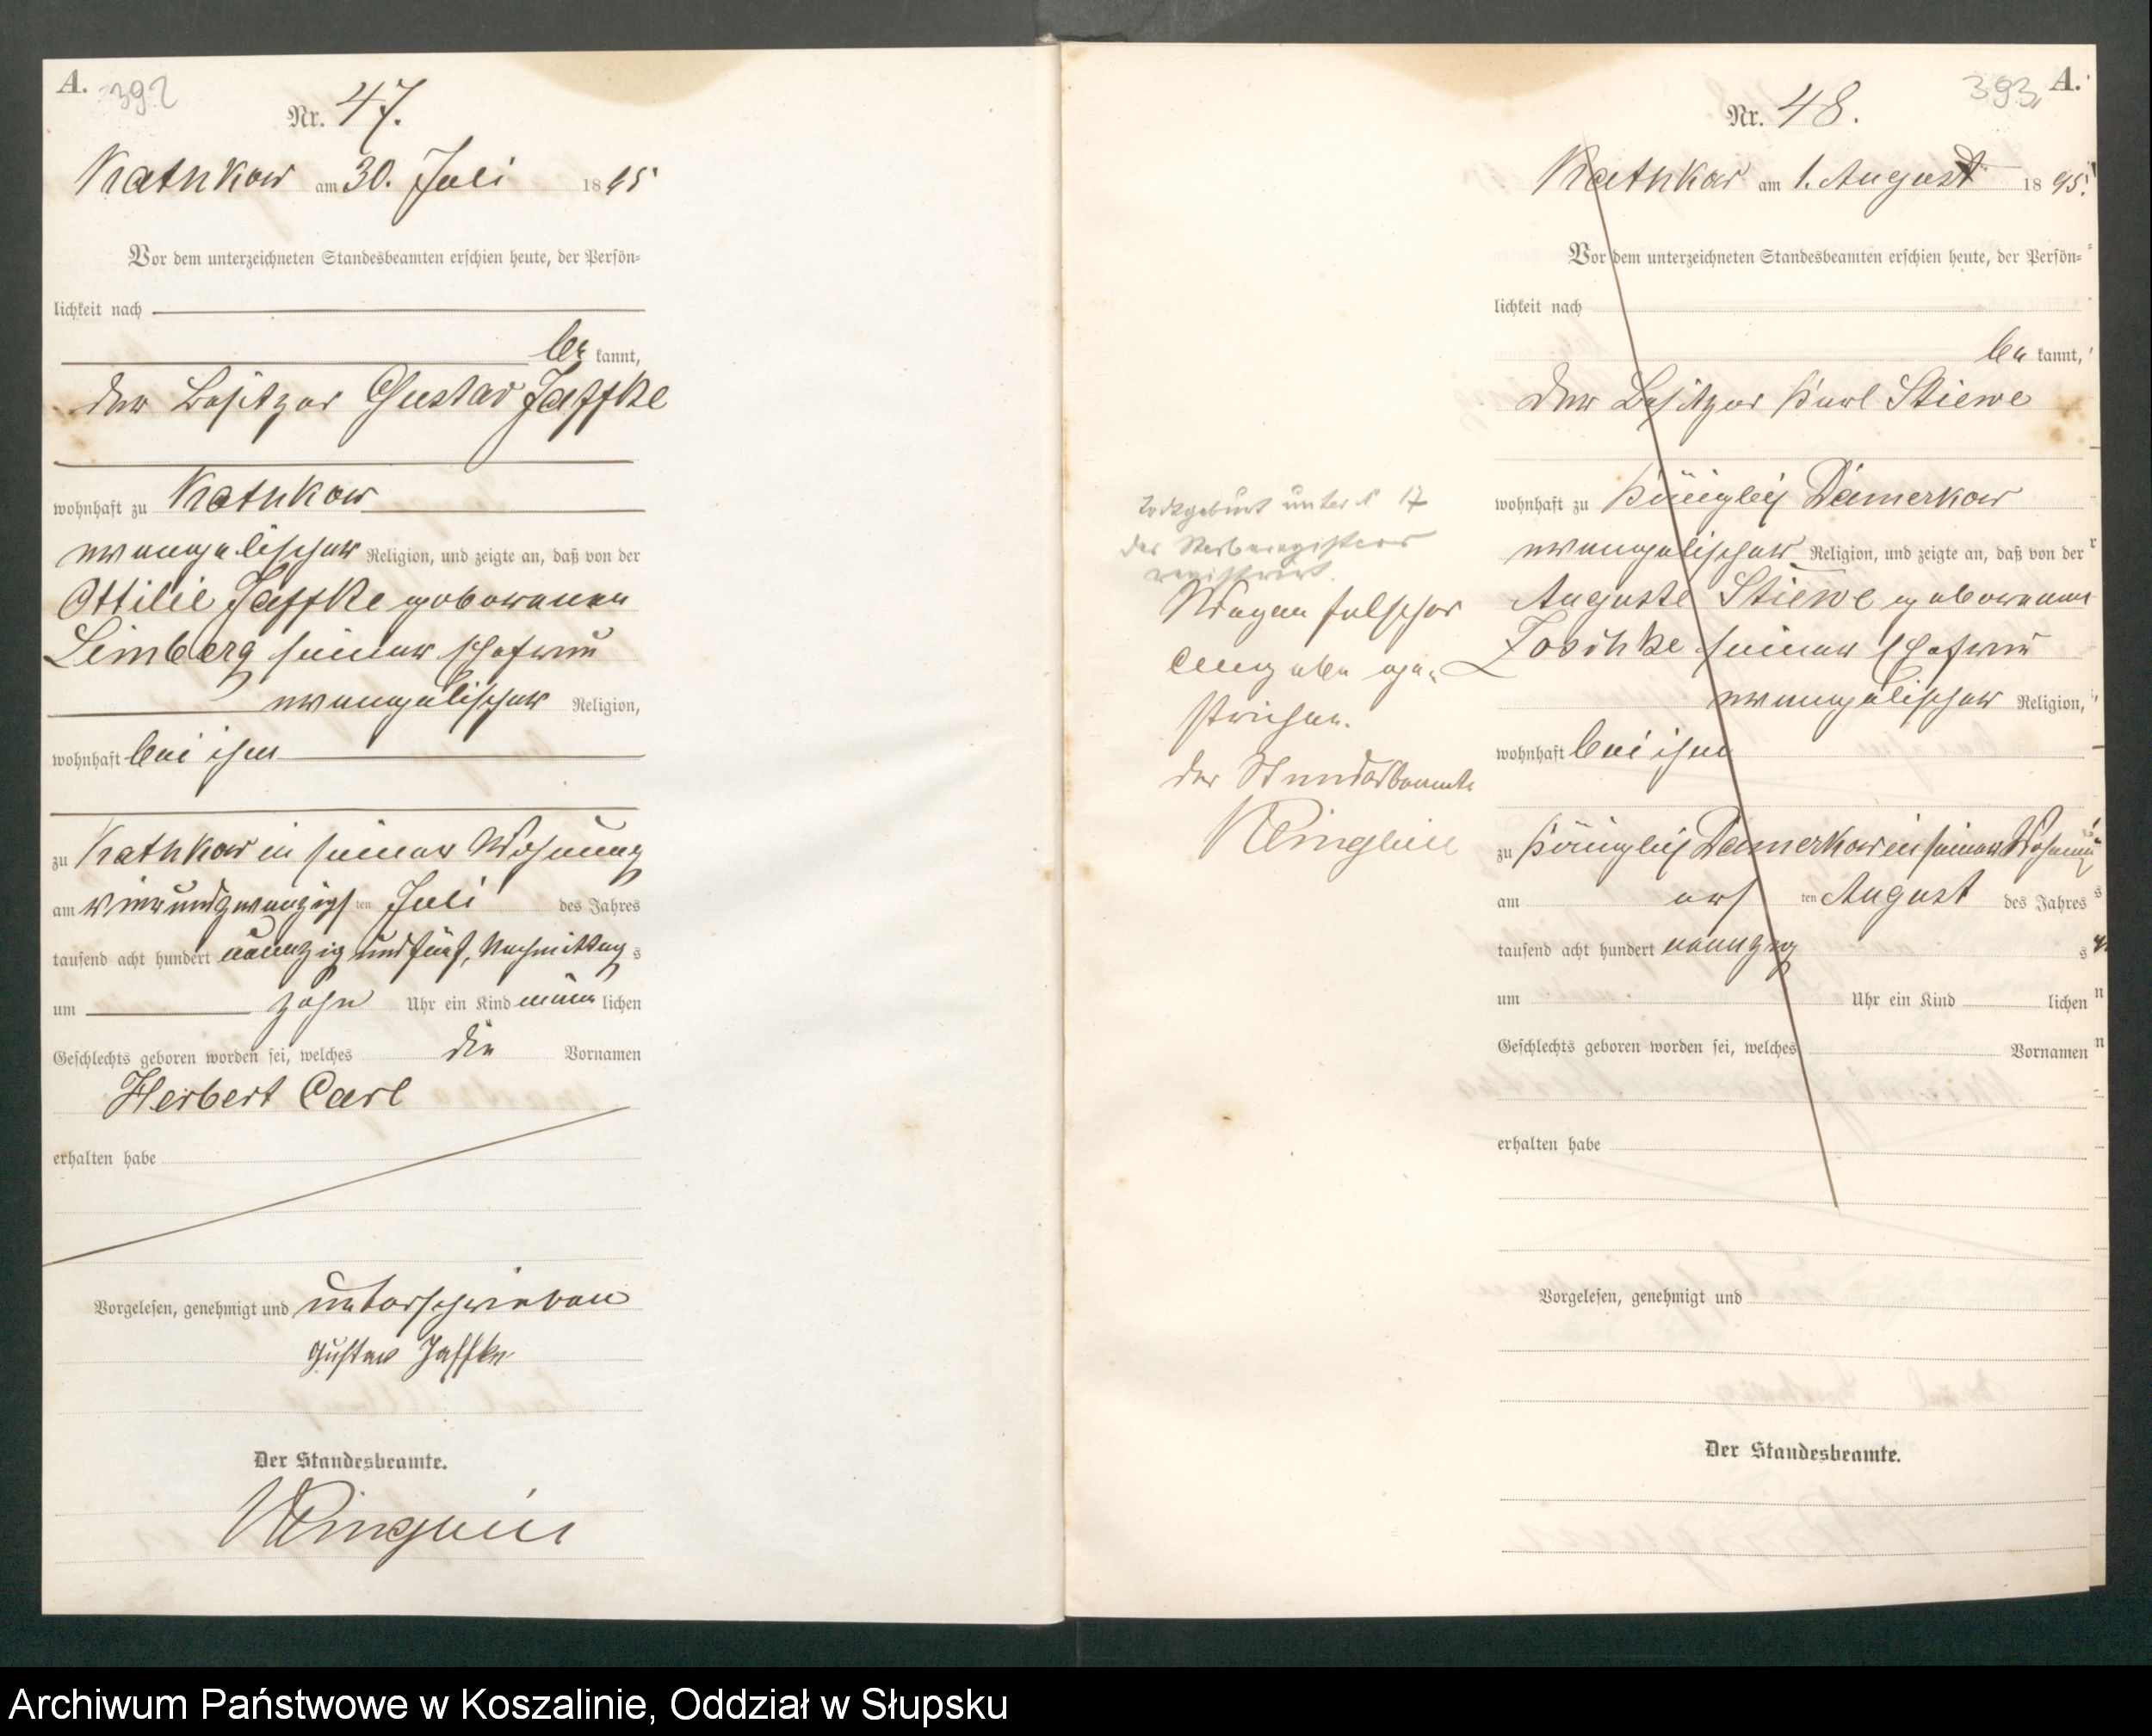 A.
392
Nr. 47.
Kathkow am 30. Juli 1895
Vor dem unterzeichneten Standesbeamten erschien heute, der Persön-
lichkeit nach
be kannt,
der Besitzer Gustav Jaffke
wohnhaft zu Kathkow
evangelischer Religion, und zeigte an, daß von der
Ottilie Jaffke geborenen
Limberg seiner Ehefrau
evangelischer Religion,
wohnhaft bei ihm
zu Kathkow in seiner Wohnung
am vierundzwanzigs ten Juli des Jahres
tausend acht hundert neunzig und fünf, Nachmittag s
um zehn Uhr ein Kind männ lichen
Geschlechts geboren worden sei, welches die Vornamen
Herbert Carl
erhalten habe
Vorgelesen, genehmigt und unterschrieben
Gustav Jaffke
Der Standesbeamte.
393
A.
Nr. 48.
Kathkow am 1. August 1895.
Vor dem unterzeichneten Standesbeamten erschien heute, der Persön-
lichkeit nach
be kannt,
der Besitzer Karl Stiewe
wohnhaft zu Königlich Damerkow
evangelischer Religion, und zeigte an, daß von der
Auguste Stiewe geborenen
Zoschke seiner Ehefrau
evangelischer Religion,
wohnhaft bei ihm
zu Königlich Damerkow in seiner Wohnung
am ers ten August des Jahres
tausend acht hundert neunzig s
um Uhr ein Kind lichen
Geschlechts geboren worden sei, welches Vornamen
erhalten habe
Vorgelesen, genehmigt und
Der Standesbeamte.
Todtgeburt unter № 17
des Sterberegisters
registrirt.
Wegen falscher
Angabe ge-
strichen.
Der Standesbeamte
Archiwum Państwowe w Koszalinie, Oddział w Słupsku